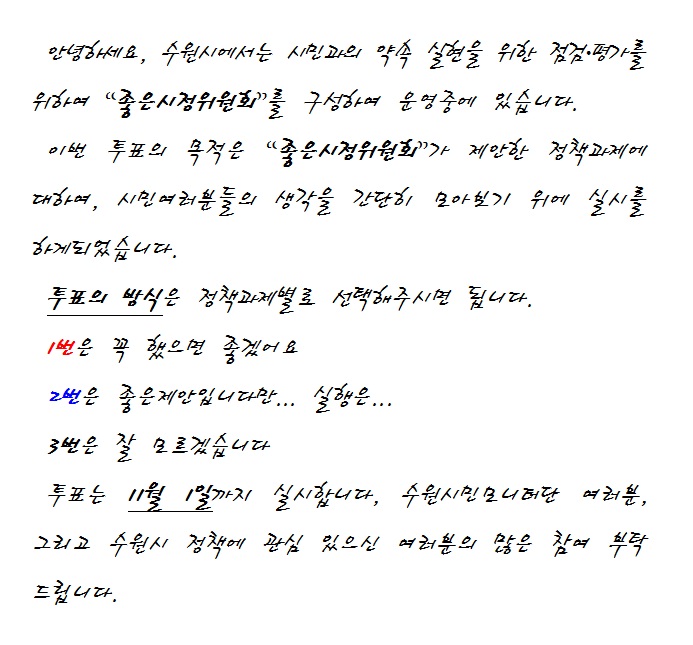 안녕하세요, 수원시에서는 시민과의 약속 실현을 위한 점검·평가를
위하여 “좋은시정위원회”를 구성하여 운영중에 있습니다.
이번 투표의 목적은 “좋은시정위원회”가 제안한 정책과제에
대하여, 시민여러분들의 생각을 간단히 모아보기 위에 실시를
하게되었습니다.
투표의 방식은 정책과제별로 선택해주시면 됩니다.
1번은 꼭 했으면 좋겠어요
2번은 좋은제안입니다만... 실행은...
3번은 잘 모르겠습니다
투표는 11월 1일까지 실시합니다, 수원시민모니터단 여러분,
그리고 수원시 정책에 관심 있으신 여러분의 많은 참여 부탁
드립니다.